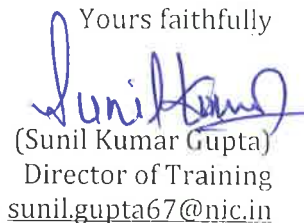 Yours faithfully
Sunil Kumar
(Sunil Kumar Gupta)
Director of Training
sunil.gupta67@nic.in